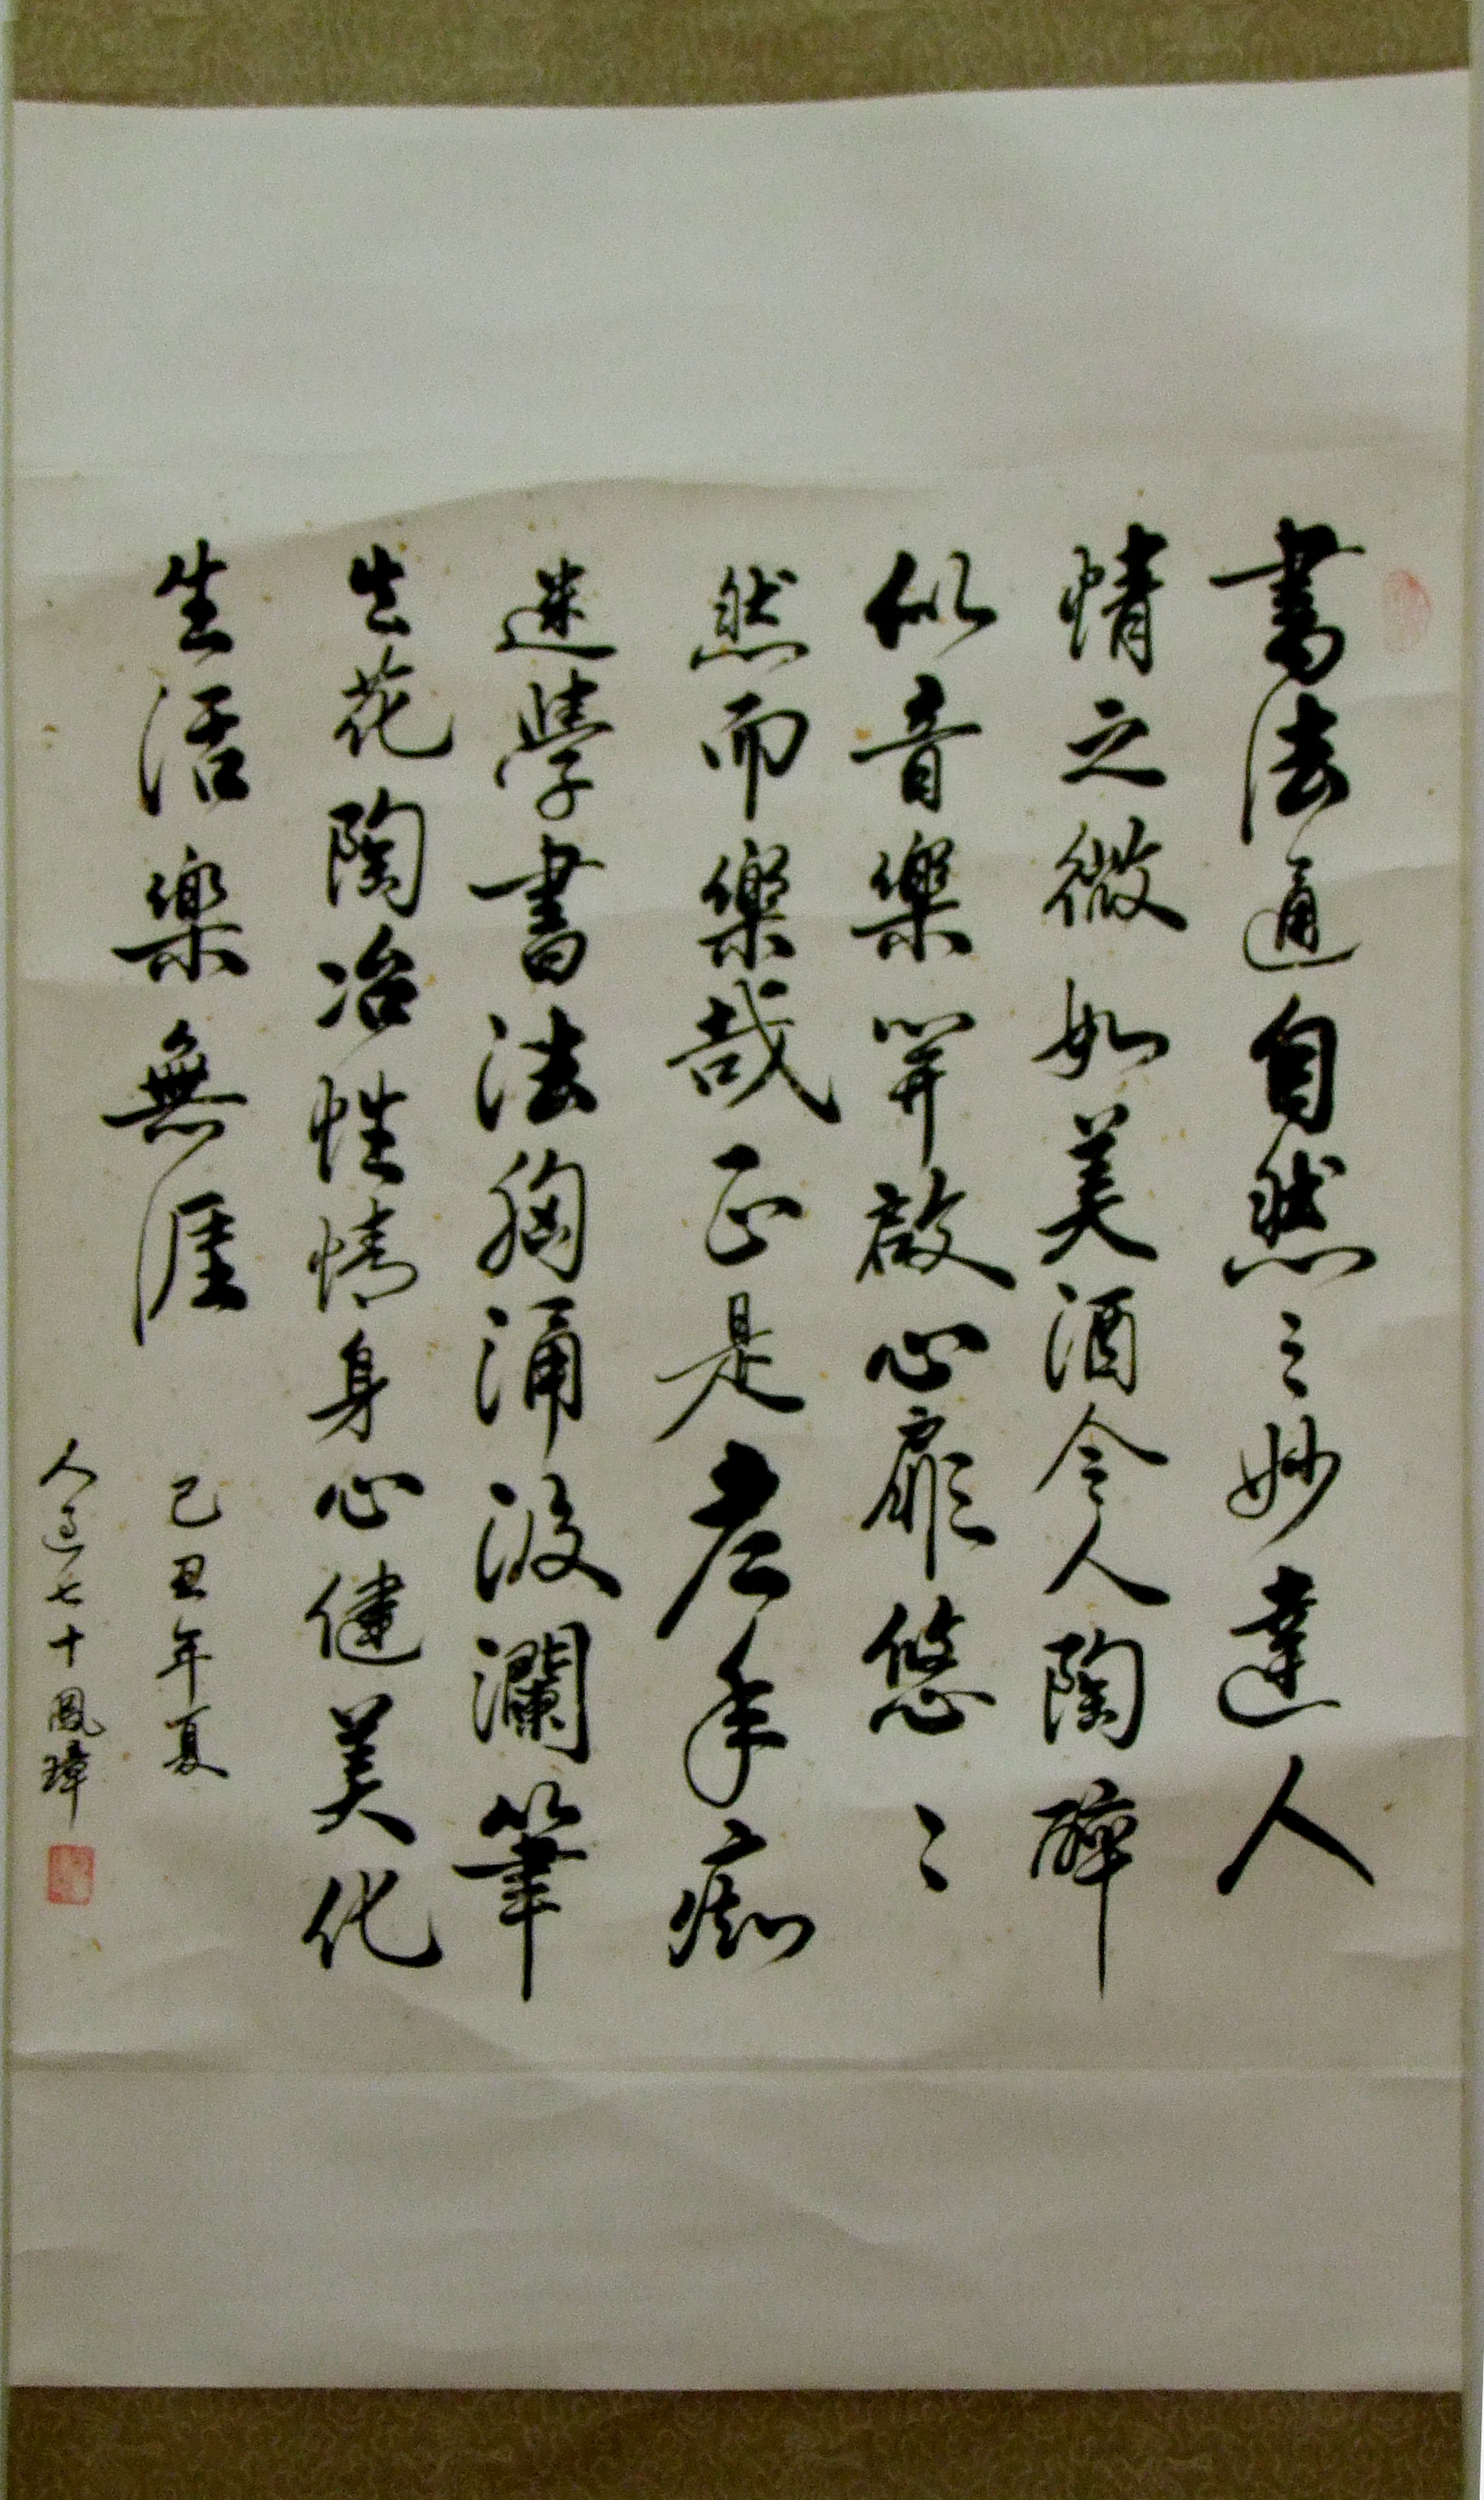 書法通自然之妙達人
情之微如美酒令人陶醉
似音樂開啟心扉悠〻
然而樂哉正是老年痴
迷學書法胸涌波瀾筆
生花陶冶性情身心健美化
生活樂無涯
己丑年夏
人過七十鳳璋